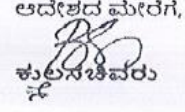 ಆದೇಶದ ಮೇರೆಗೆ,
ಕುಲಸಚಿವರು